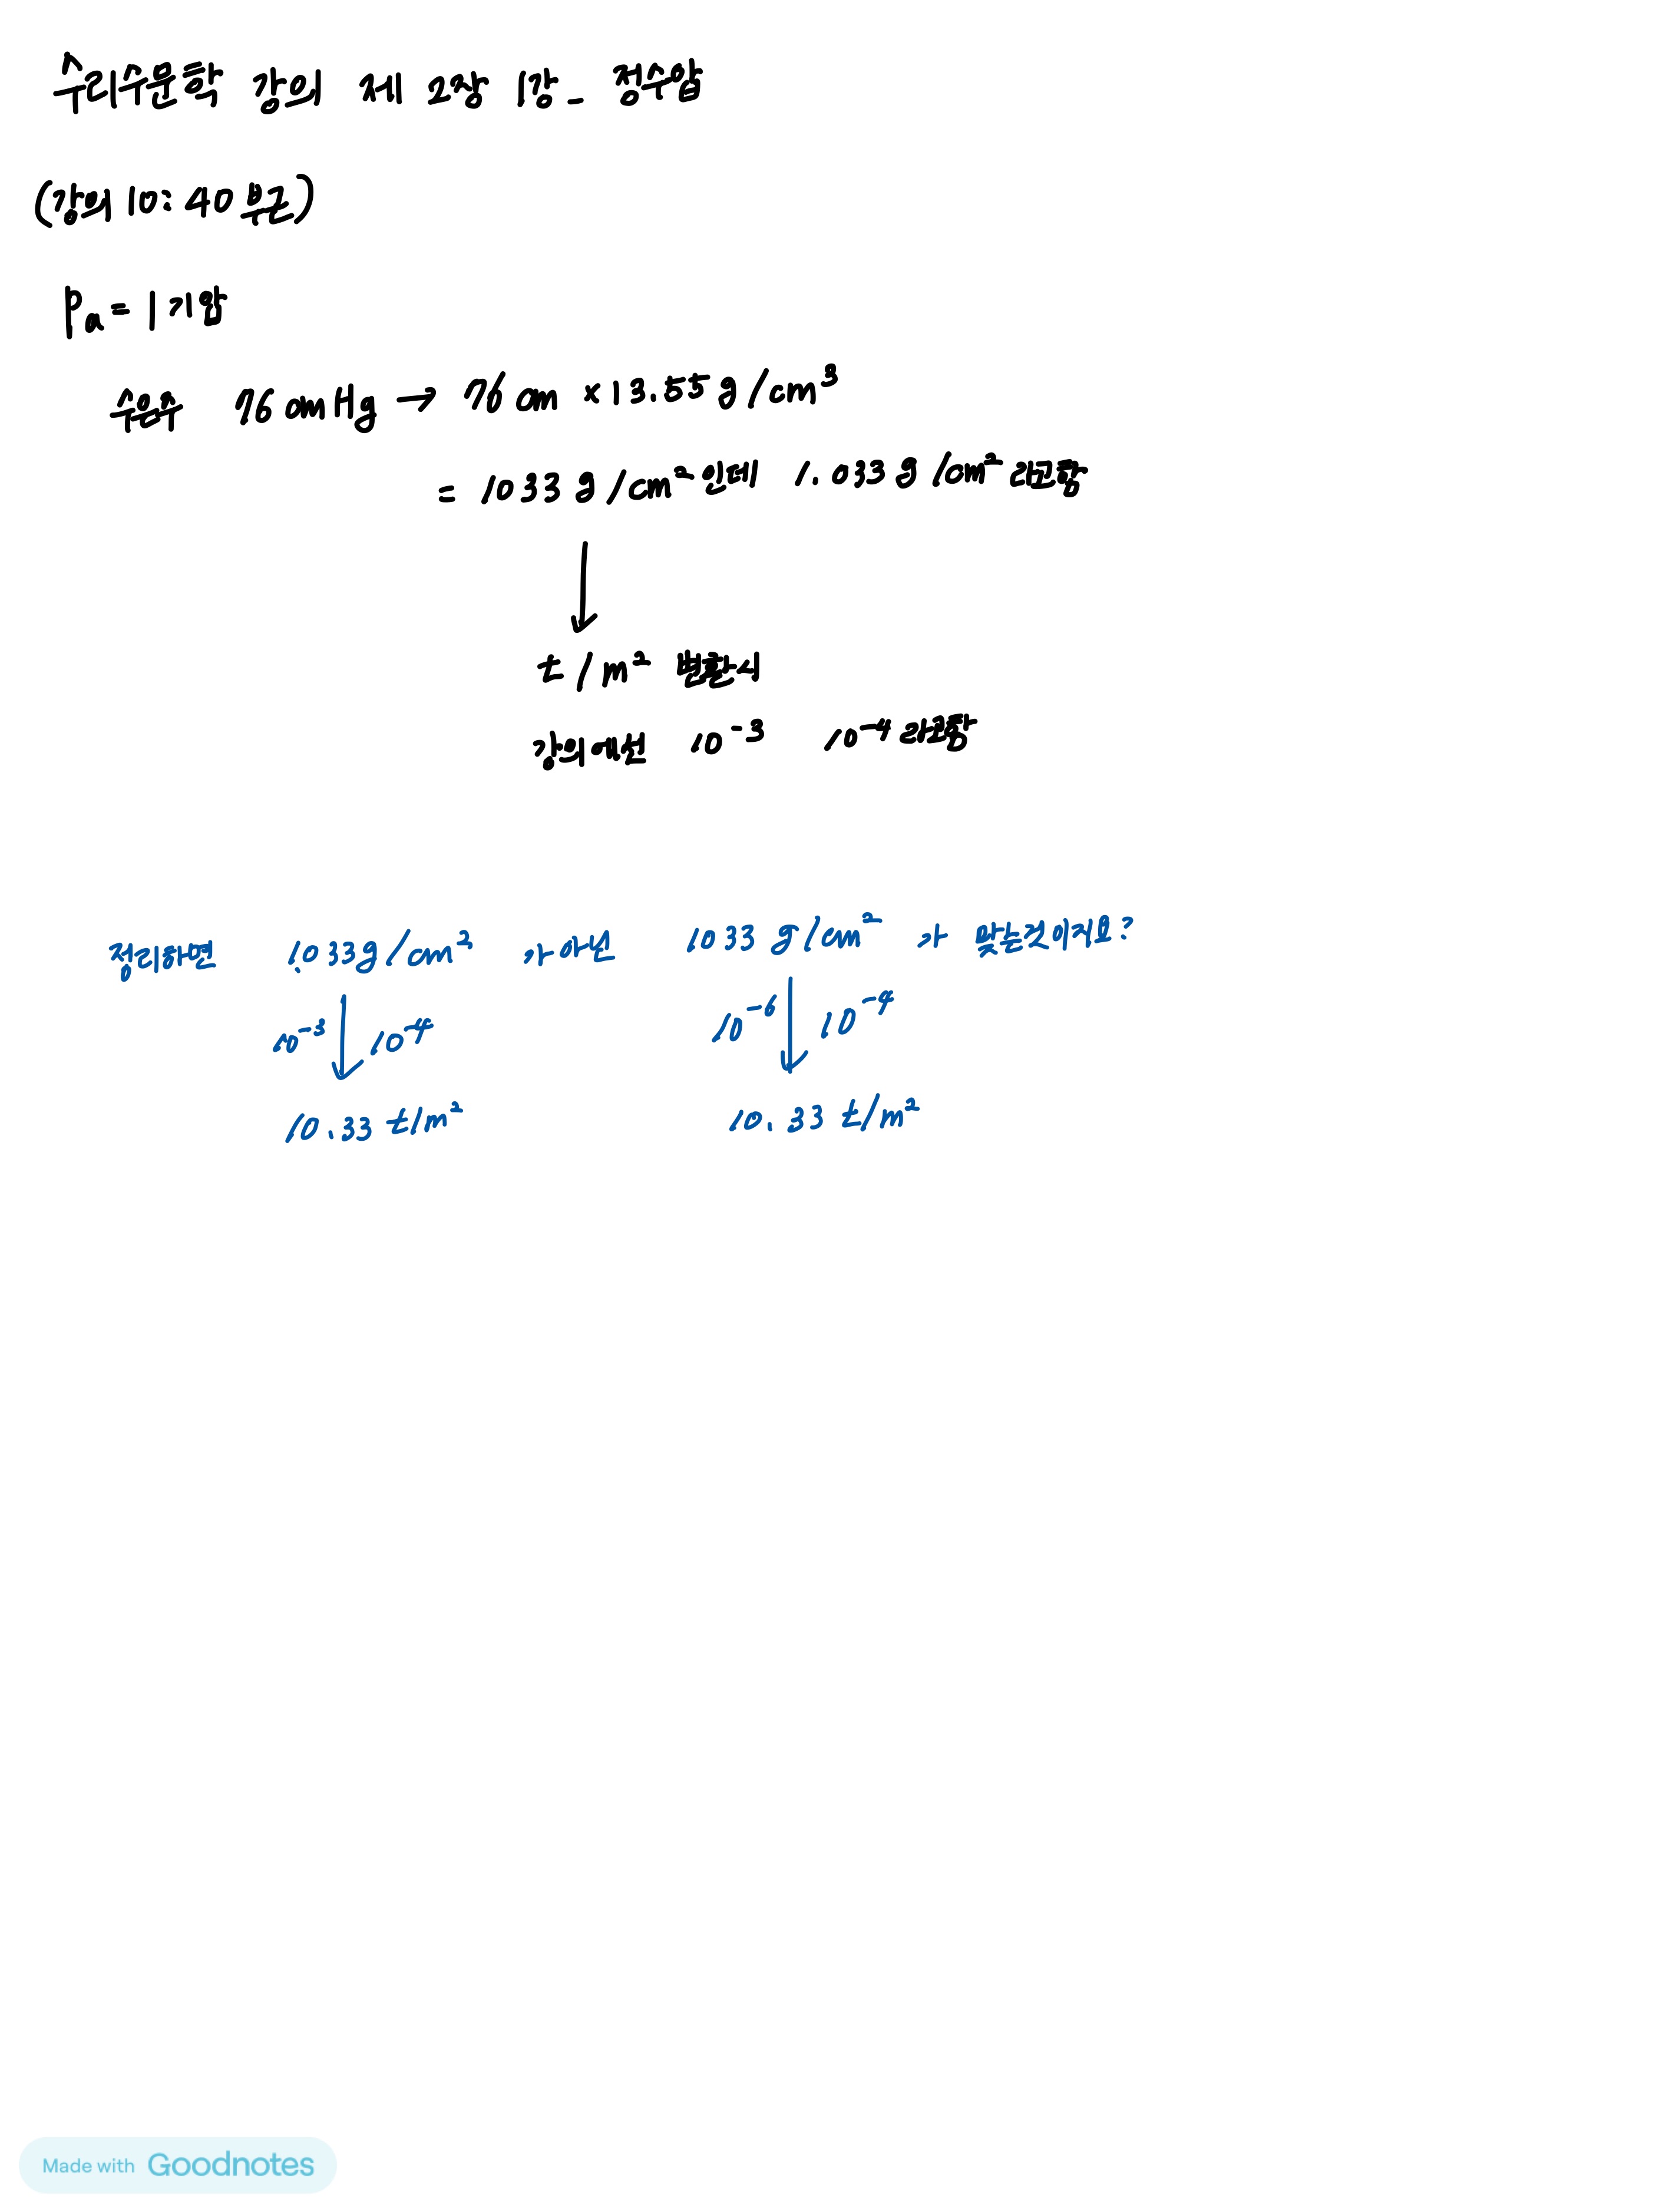 수리수문학 강의 제 2장 1강_ 정수압
(강의 10:40 부근)
Pa = 1기압
수은주 76cmHg → 76cm × 13.55g/cm³
= 1033 g/cm² 인데 1.033 g/cm² 라고함
↓
t/m² 변환시
강의에선 10⁻³ 10⁻⁴ 라고함
정리하면 1.033g/cm² 가 아닌 1033 g/cm² 가 맞는것이지요?
10⁻³ ↓ 10⁻⁴ 10⁻⁶ ↓ 10⁻⁴
10.33 t/m² 10.33 t/m²
Made with Goodnotes